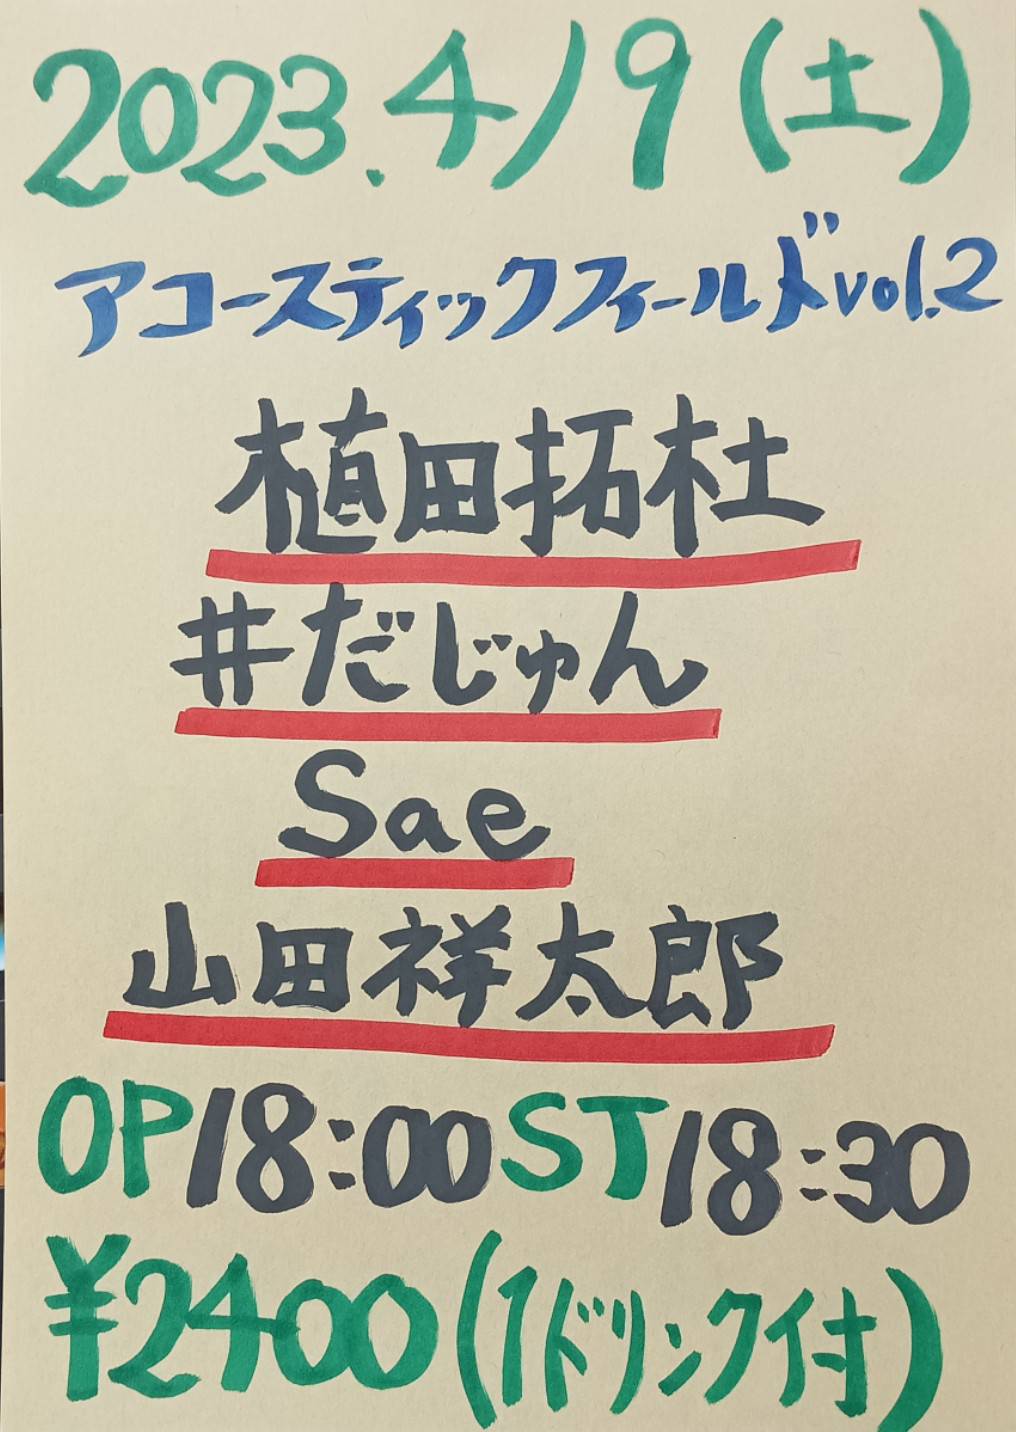 2023.4/9(土)
アコースティックフィールドvol.2
植田拓杜
#だじゅん
Sae
山田祥太郎
OP18:00 ST18:30
¥2400(1ドリンク付)